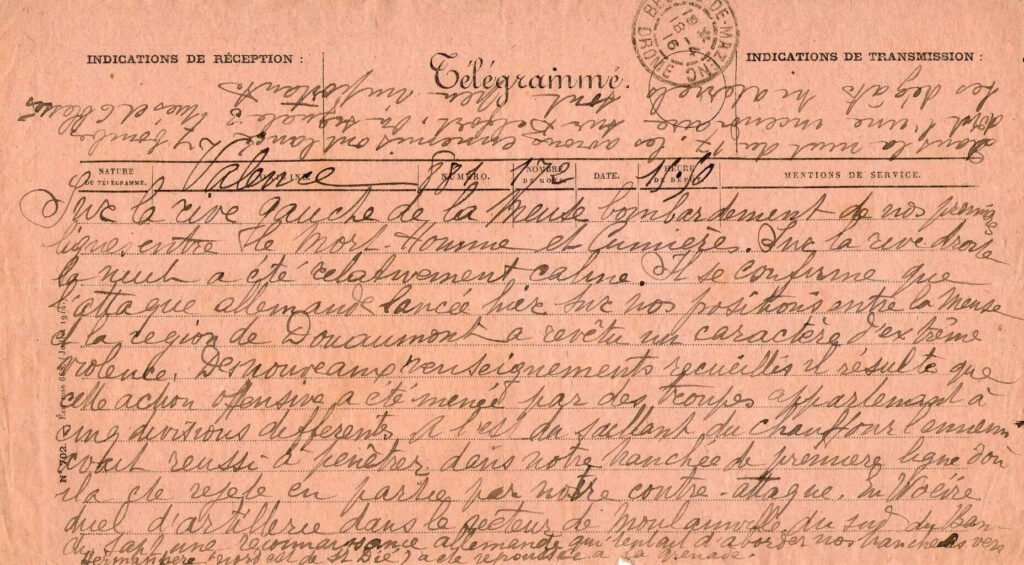 INDICATIONS DE RÉCEPTION :
Télégramme.
INDICATIONS DE TRANSMISSION :
DE-MAZENC
DROME
18-4
16
Dans la nuit du 17 les avions ennemis ont lancé 27 bombes
dont l'une incendiaire sur Belfort, on signale 3 tués et 6 blessés
Les dégâts matériels sont peu importants
NATURE
DU TÉLÉGRAMME.
Valence
NUMÉRO.
NOMBRE
DE MOTS
DATE.
HEURE
DE DÉPÔT
MENTIONS DE SERVICE.
Sur la rive gauche de la Meuse bombardement de nos premières
lignes entre le Mort-Homme et Cumières. Sur la rive droite
la nuit a été relativement calme. Il se confirme que
l'attaque allemande lancée hier sur nos positions entre la Meuse
et la région de Douaumont a revêtu un caractère d'extrême
violence. De nouveaux renseignements recueillis il résulte que
cette action ofensive a été menée par des troupes appartenant à
cinq divisions differents A l'est du saillant du Chauffour l'ennemi
avait reussi à penêtrer dans notre tranchée de première ligne d'où
il a été rejeté en partie par notre contre-attaque. En Woëvre
duel d'artillerie dans le secteur de Moulainville du sud du Ban
de Sapt une reconnaissance allemande qui tentait d'aborder nos tranchées vers
Hermanpère (nord est de St Dié) a été repoussée à la grenade.
N° 702.